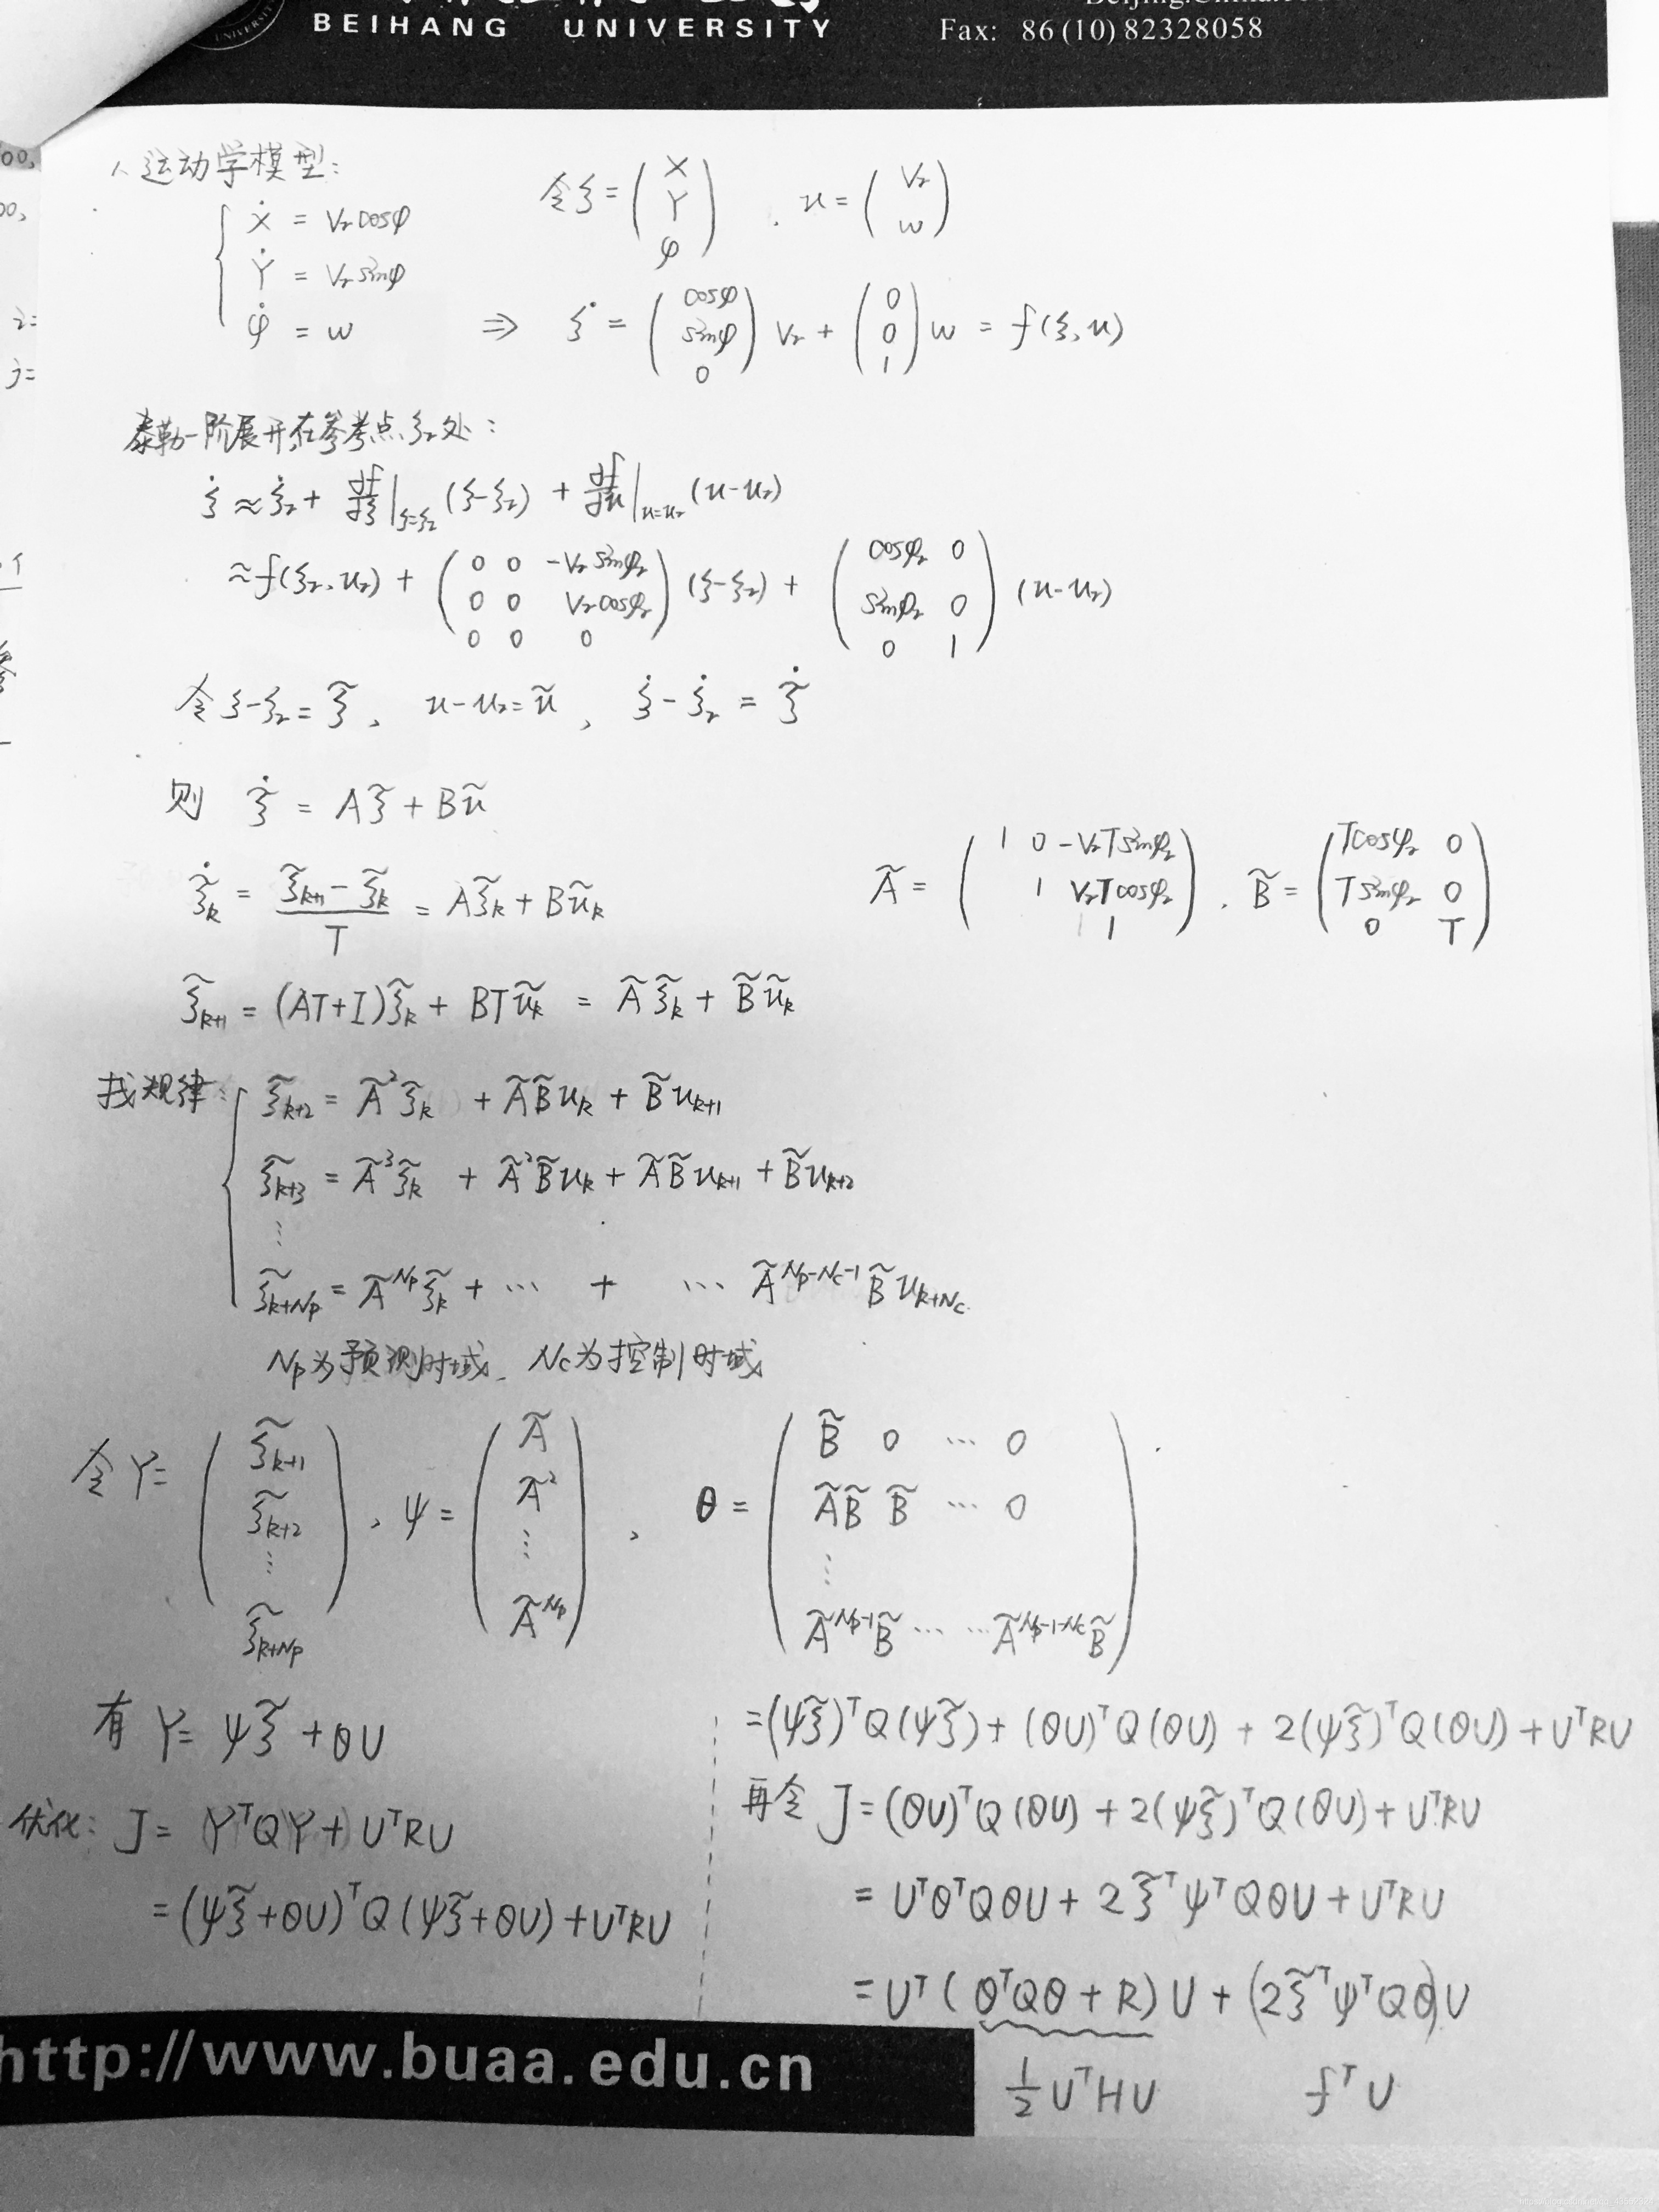 BEIHANG UNIVERSITY
Fax: 86 (10) 82328058
运动学模型:
Ẋ = Vr cosφ
Ẏ = Vr sinφ
φ̇ = w
令 ξ = (X Y φ) , u = (Vr w)
⇒ ξ̇ = (cosφ sinφ 0) Vr + (0 0 1) w = f(ξ, u)
泰勒一阶展开,在参考点 ξr 处:
ξ̇ ≈ ξ̇r + ∂f/∂ξ |ξ=ξr (ξ-ξr) + ∂f/∂u |u=ur (u-ur)
≈ f(ξr, ur) + (0 0 -Vr sinφr; 0 0 Vr cosφr; 0 0 0) (ξ-ξr) + (cosφr 0; sinφr 0; 0 1) (u-ur)
令 ξ-ξr = ξ̃, u-ur = ũ, ξ̇-ξ̇r = ξ̃̇
则 ξ̃̇ = Aξ̃ + Bũ
ξ̃̇k = (ξ̃k+1 - ξ̃k)/T = Aξ̃k + Bũk
Ã = (1 0 -VrTsinφr; 1 VrTcosφr; 1) , B̃ = (Tcosφr 0; Tsinφr 0; 0 T)
ξ̃k+1 = (AT+I)ξ̃k + BTũk = Ãξ̃k + B̃ũk
找规律:
ξ̃k+2 = Ã²ξ̃k + ÃB̃uk + B̃uk+1
ξ̃k+3 = Ã³ξ̃k + Ã²B̃uk + ÃB̃uk+1 + B̃uk+2
⋮
ξ̃k+Np = Ã^Np ξ̃k + ⋯ + ⋯ Ã^(Np-Nc-1) B̃uk+Nc
Np为预测时域, Nc为控制时域
令 Y = (ξ̃k+1 ξ̃k+2 ⋮ ξ̃k+Np) , ψ = (Ã Ã² ⋮ Ã^Np) , θ = (B̃ 0 ⋯ 0; ÃB̃ B̃ ⋯ 0; ⋮; Ã^(Np-1)B̃ ⋯ ⋯ Ã^(Np-1-Nc)B̃)
有 Y = ψξ̃ + θU
优化: J = YᵀQY + UᵀRU
= (ψξ̃+θU)ᵀQ(ψξ̃+θU) + UᵀRU
= (ψξ̃)ᵀQ(ψξ̃) + (θU)ᵀQ(θU) + 2(ψξ̃)ᵀQ(θU) + UᵀRU
再令 J = (θU)ᵀQ(θU) + 2(ψξ̃)ᵀQ(θU) + UᵀRU
= UᵀθᵀQθU + 2ξ̃ᵀψᵀQθU + UᵀRU
= Uᵀ(θᵀQθ + R)U + (2ξ̃ᵀψᵀQθ)U
½UᵀHU fᵀU
http://www.buaa.edu.cn